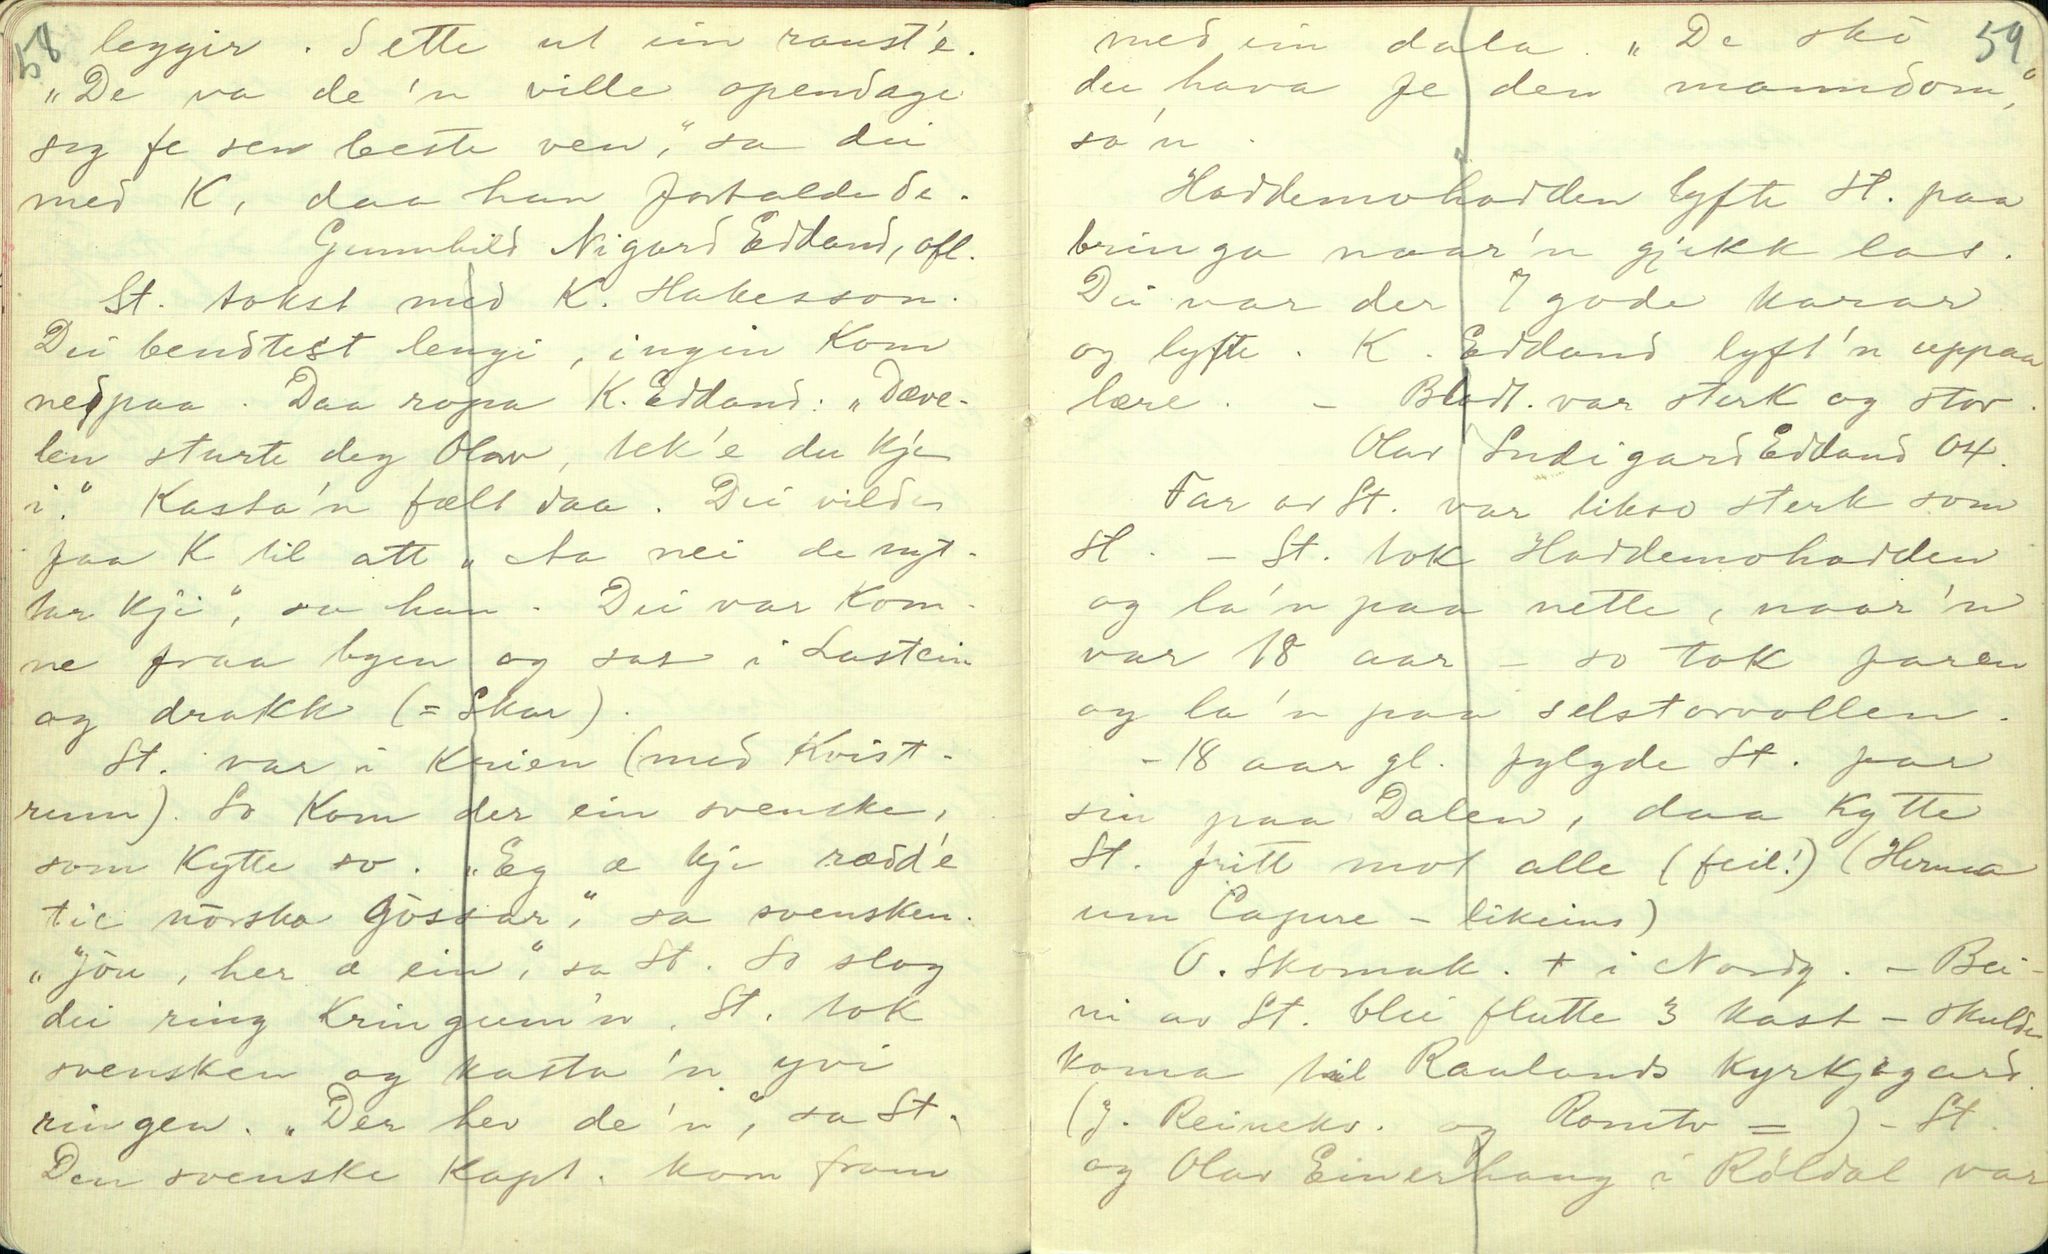 58
leggir. Sette ut ein raust'e.
"De va de'n ville opendage
seg fe sen beste ven," sa dei
med K, daa han fortalde de.
Gunnhild Nigard Edland, ofl.
St. tokst med K. Hakesson.
Dei bendtest lengi, ingin kom
nedpaa. Daa ropa K. Edland: "Dæve-
len sturte deg Olav, tek'e du kje
i." Kasta'n fælt daa. Dei vilde
faa K til att "Aa nei de nyt-
tar kji", sa han. Dei var kom-
ne fraa byen og sat i Lastein
og drakk (= Skar).
St. var i krien (med Kvist-
rum). So kom der ein svenske,
som kytte so. "Eg æ kje rædd'e
tie nörska gössar," sa svensken.
"Jöu, her æ ein," sa St. So slog
dei ring kringum'n. St. tok
svensken og kasta'n yvi
ringen. "Der hev de'n", sa St.
Den svenske kapt. kom fram
59
med ein dala. "De ska
du hava fe den manndom,"
sa'n.
Haddemohadden lyfte St. paa
bringa naar'n gjekk las.
Dei var der 7 gode karar
og lyfte. K. Edland lyft'n uppaa
lære. – Bladt. var sterk og stor.
Olav Sudigard Edland Ofl.
Far av St. var likso sterk som
St. – St. tok Haddemohadden
og la'n paa nette, naar'n
var 18 aar – so tok faren
og la'n paa selstovvollen.
– 18 aar gl. fylgde St. far
sin paa Dalen, daa kytte
St. fritt mot alle (feil!) (Herma
um Eapure – likeins)
O. Skomak. + i Nordg. – Bei-
ni av St. blei flutte 3 kast – skulde
koma til Raulands kyrkjegard.
(J. Reinekv. og Romtv = ) – St.
og Olav Einerhaug i Röldal var